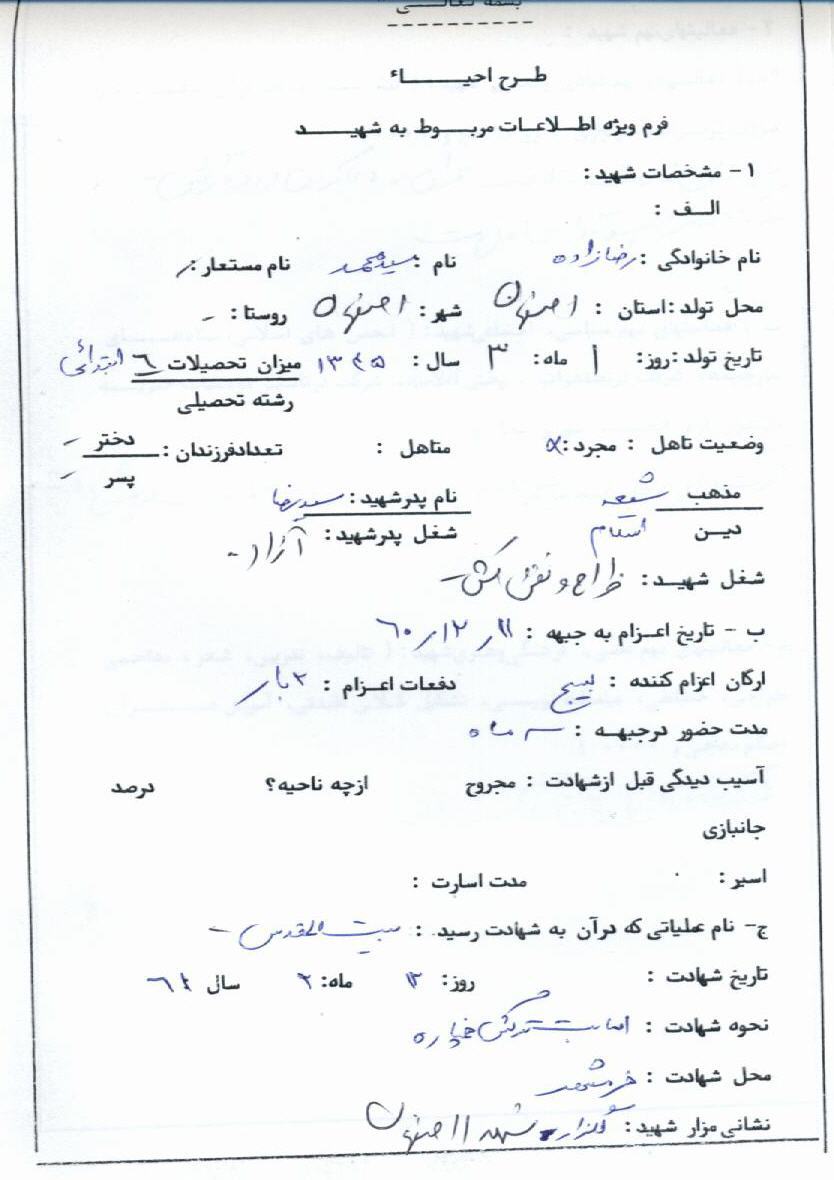 بسمه تعالـــی
طــرح احیـــــاء
فرم ویژه اطــلاعــات مربــوط به شهیــــد
۱- مشخصات شهید :
الــف :
نام خانوادگی : رضازاده نام : سیدمحمد نام مستعار : -
محل تولد : استان : اصفهان شهر : اصفهان روستا : -
تاریخ تولد : روز : ۱ ماه : ۳ سال : ۱۳۴۵ میزان تحصیلات ۶ ابتدائی
رشته تحصیلی
وضعیت تاهل : مجرد : × متاهل : تعدادفرزندان : دختر -
پسر -
مذهب شیعه نام پدرشهید : سیدرضا
دیــن اسلام شغل پدرشهید : آزاد -
شغل شهیــد : طراح و نقش کش -
ب - تاریخ اعــزام به جبهه : ۱۱ / ۱۲ / ۶۰
ارگان اعزام کننده : بسیج دفعات اعــزام : ۲ بار
مدت حضور درجبهــه : سه ماه
آسیب دیدگی قبل ازشهادت : مجروح ازچه ناحیه؟ درصد
جانبازی
اسیر : مدت اسارت :
ج- نام عملیاتی که درآن به شهادت رسید : بیت المقدس -
تاریخ شهادت : روز : ۱۲ ماه : ۲ سال ۶۱
نحوه شهادت : اصابت ترکش خمپاره
محل شهادت : خرمشهر
نشانی مزار شهید : گلزار شهدا اصفهان